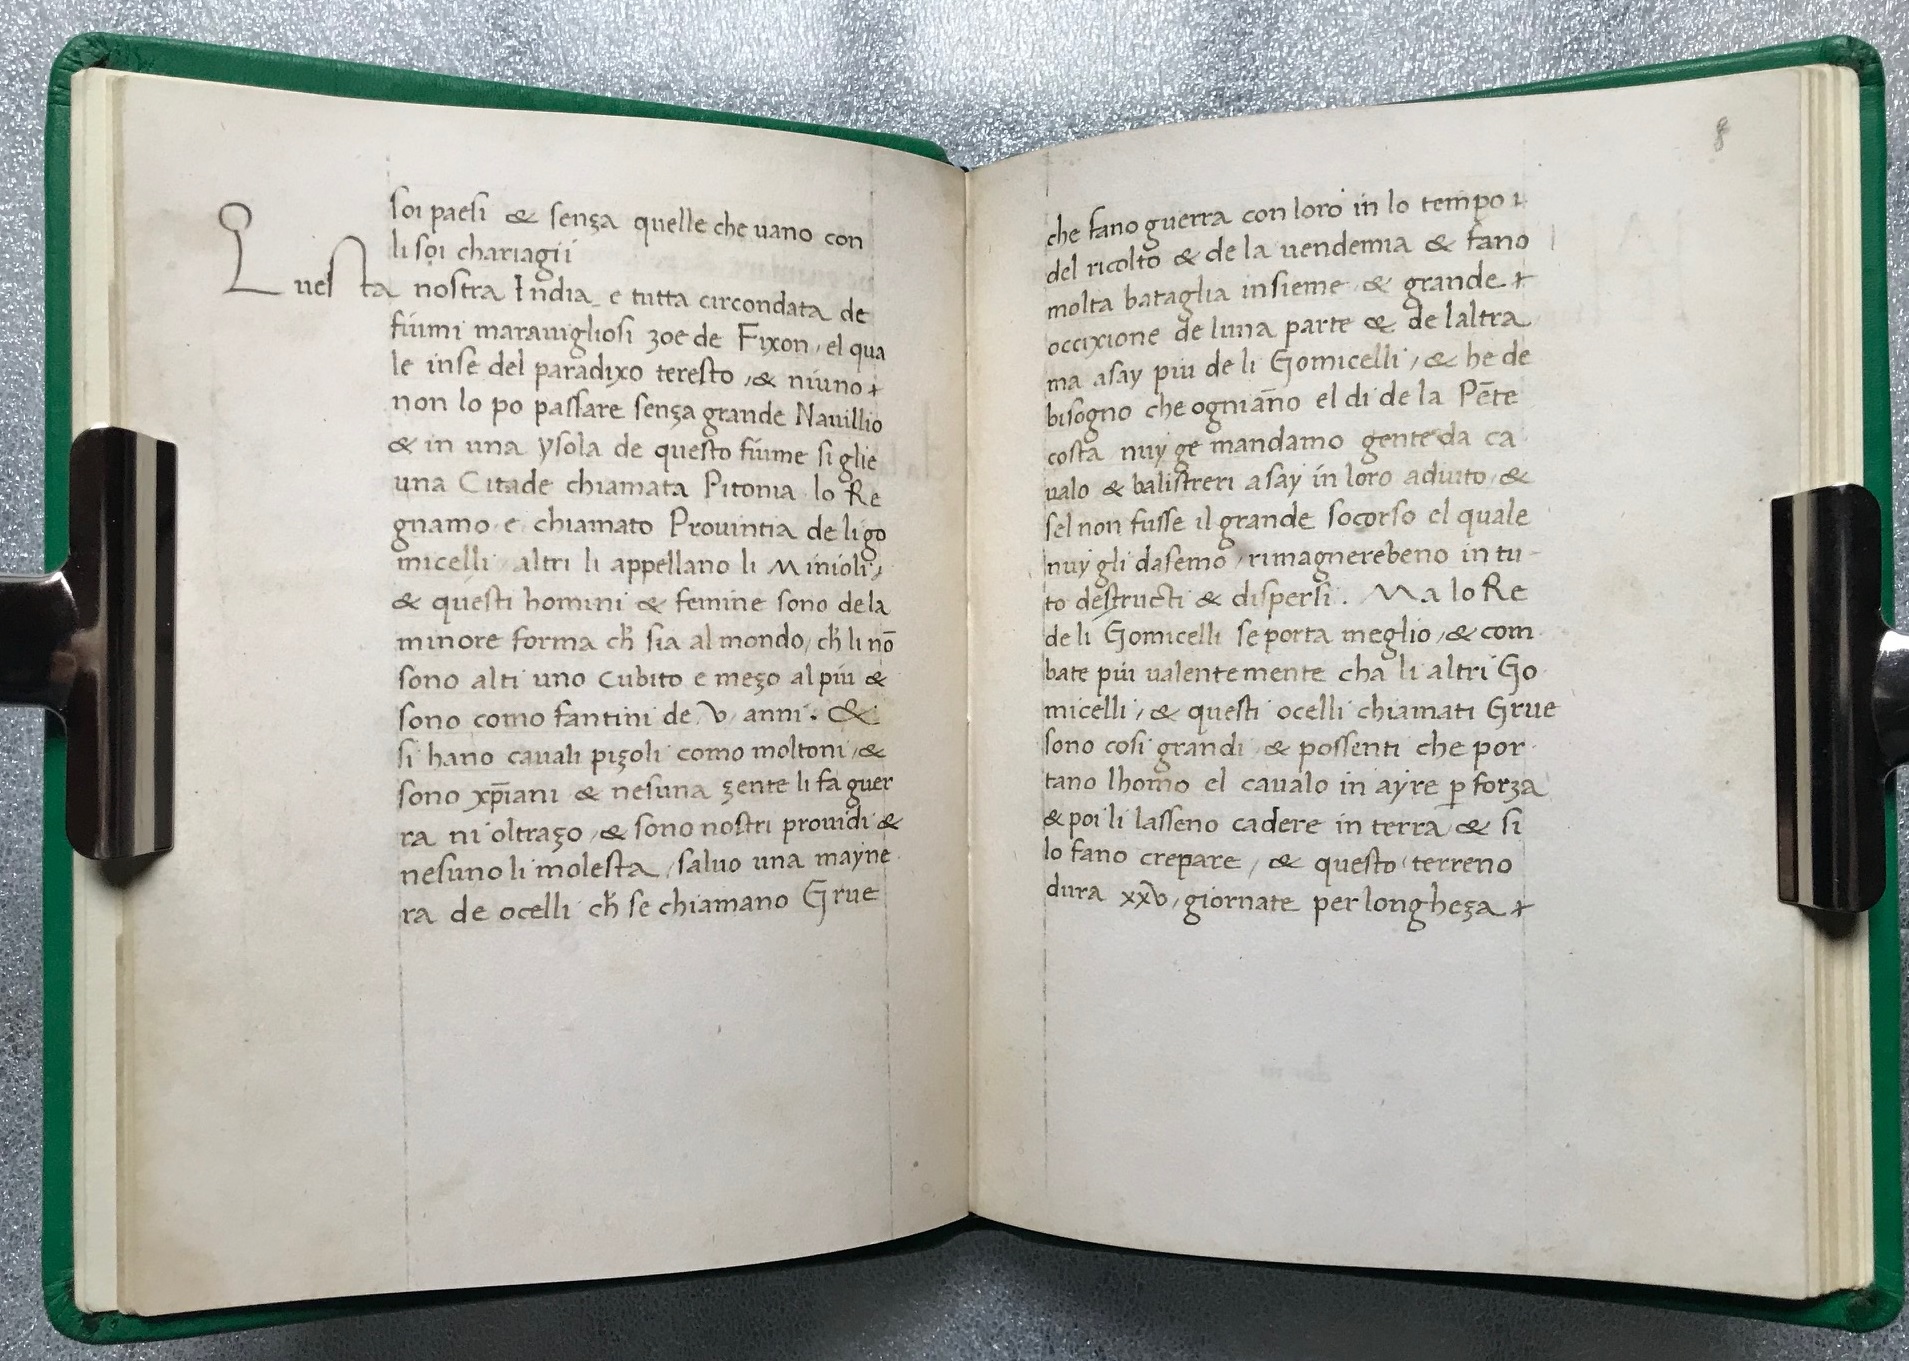 soi paesi & senza quelle che uano con
li soi chariagii
Questa nostra India e tutta circondata de
fiumi marauigliosi zoe de Fixon, el qua
le inse del paradixo teresto, & niuno
non lo po passare senza grande Nauillio
& in una ysola de questo fiume si glie
una Citade chiamata Pitonia lo Re
gnamo e chiamato Prouintia de li go
micelli altri li appellano li Minioli,
& questi homini & femine sono de la
minore forma ch̄ sia al mondo, ch̄ li nō
sono alti uno cubito e mezo al piu &
sono como fantini de v, anni. &
si hano cauali pizoli como moltoni, &
sono xp̄iani & nesuna zente li fa guer
ra ni oltrazo, & sono nostri prouidi &
nesuno li molesta, saluo una mayne
ra de ocelli ch̄ se chiamano Grue
8
che fano guerra con loro in lo tempo
del ricolto & de la uendemia & fano
molta bataglia insieme & grande
occixione de luna parte & de laltra
ma asay piu de li Gomicelli, & he de
bisogno che ogniāno el di de la Pēte
costa nuy ge mandamo gente da ca
ualo & balistreri asay in loro adiuto, &
sel non fusse il grande socorso el quale
nuy gli dasemo, rimagnerebeno in tu-
to destructi & dispersi. Ma lo Re
de li Gomicelli se porta meglio, & com
bate piu ualentemente cha li altri Go
micelli, & questi ocelli chiamati Grue
sono cosi grandi & possenti che por
tano lhomo el caualo in ayre ꝑ forza
& poi li lasseno cadere in terra & si
lo fano crepare, & questo terreno
dura xxv, giornate per longheza